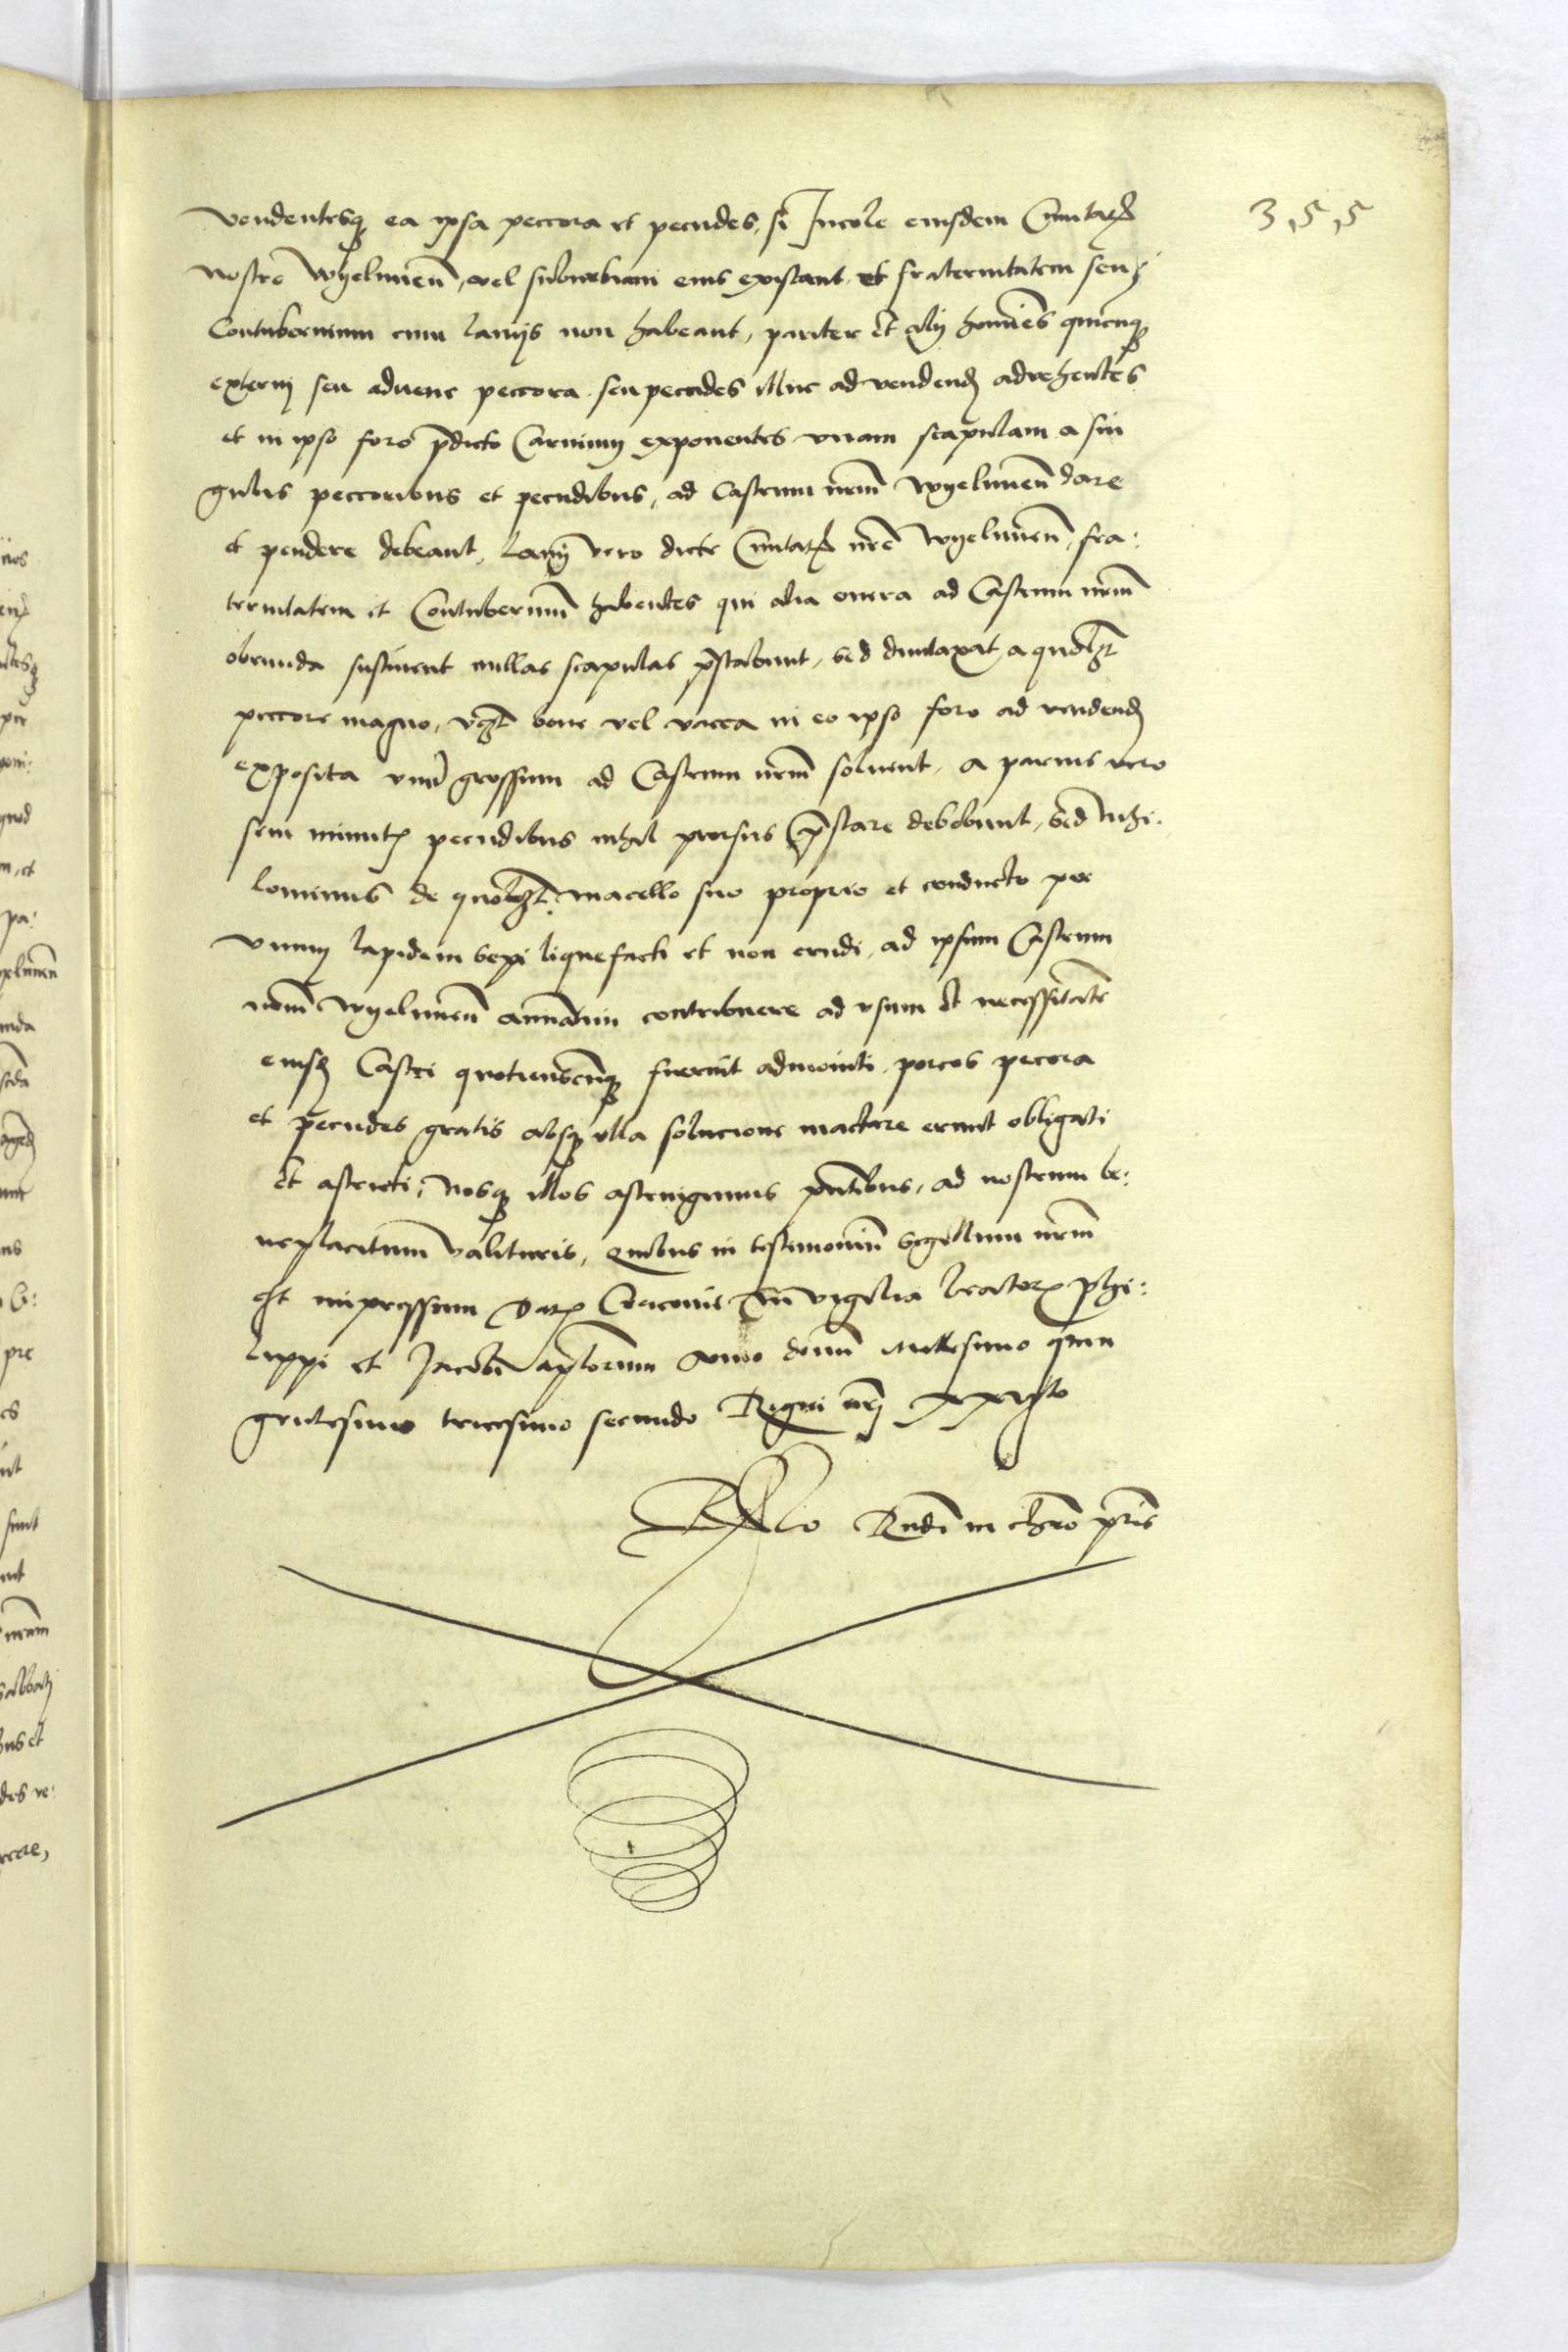 355
vendentesq ea ipsa peccora et pecudes, si Incole eiusdem Ciuitat
nostre Wyelunen, vel suburbani eius existant et fraternitatem seu
Contubernium cum lanijs non habeant, pariter et alij homines quicunq
externi seu aduene peccora seu pecudes illuc ad vendend advehentes
et in ipso foro pdicto Carnium exponentes vnam scapulam a sin
gulis peccoribus et pecudibus, ad Castrum nrm Wyelunen dare
et pendere debeant, lanij vero dicte Ciuitat nre Wyelunen, fra:
ternitatem et Contubernium habentes qui alia onera ad Castrum nrm
obeunda sustinent nullas scapulas pstabunt, sed duntaxat a quolzt
peccore magno, vzt boue vel vacca in eo ipso foro ad vendend
exposita vnu grossum ad Castrum nrm soluent, a paruis vero
seu minut pecudibus nihil prorsus pstare debebunt, sed nihi:
lominus de quolzt macello suo proprio et conducto per
vnum lapidem sepi liquefacti et non crudi, ad ipsum Castrum
nrm Wyelunen annuatim contribuere ad vsum et necessitate
eiusd Castri quotienscunq fuerint admoniti, porcos pecora
et pecudes gratis absq vlla solucione mactare erunt obligati
et astricti, Nosq illos astringimus pntibus, ad nostrum be:
neplacitum valituris, Quibus in testimonium Sigillum nrm
est impressum Dat Cracouie In vigilia beator Phi:
lippi et Jacobi aplorum Anno domi Millesimo quin
gentesimo tricesimo secundo Regni nrj XXVIto
Rlo Rndi in chro pris